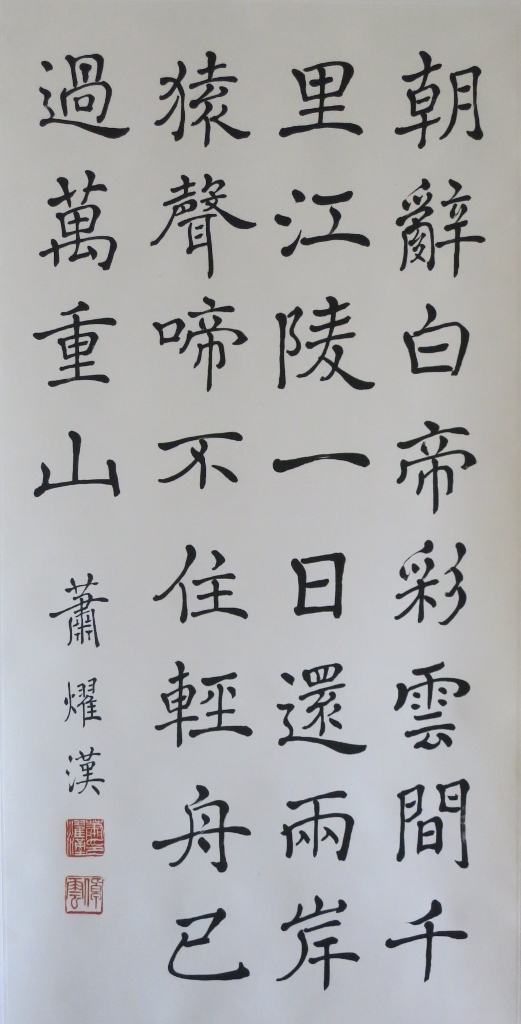 朝辭白帝彩雲間千
里江陵一日還兩岸
猿聲啼不住輕舟已
過萬重山
蕭燿漢